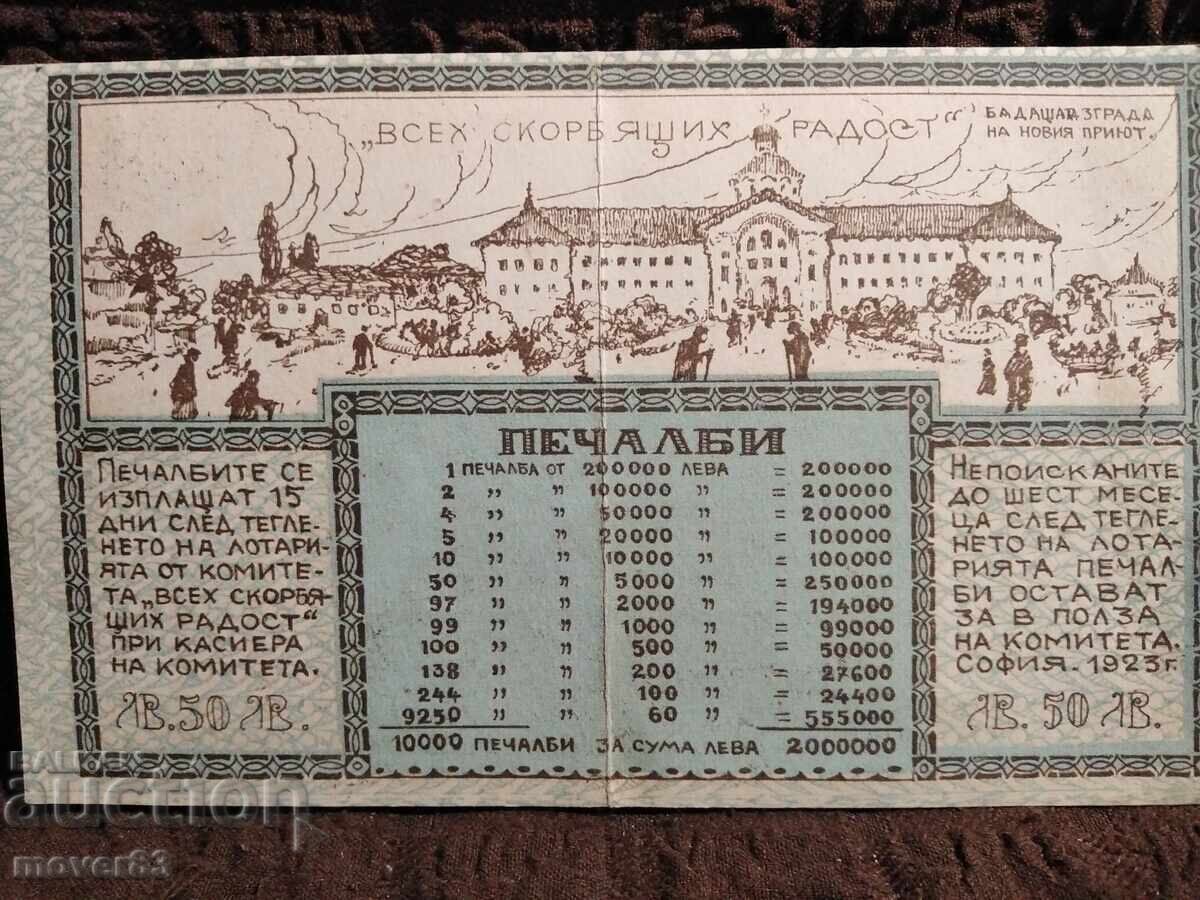 „ВСЕХ СКОРБЯЩИХ РАДОСТ“
БАДАЩАТА ЗГРАДА
НА НОВИЯ ПРИЮТ.
ПЕЧАЛБИТЕ СЕ
ИЗПЛАЩАТ 15
ДНИ СЛЕД ТЕГЛЕ-
НЕТО НА ЛОТАРИ-
ЯТА ОТ КОМИТЕ-
ТА „ВСЕХ СКОРБЯ-
ЩИХ РАДОСТ“
ПРИ КАСИЕРА
НА КОМИТЕТА.
ЛВ. 50 ЛВ.
ПЕЧАЛБИ
1 ПЕЧАЛБА ОТ 200000 ЛЕВА = 200000
2 „ „ 100000 „ = 200000
4 „ „ 50000 „ = 200000
5 „ „ 20000 „ = 100000
10 „ „ 10000 „ = 100000
50 „ „ 5000 „ = 250000
97 „ „ 2000 „ = 194000
99 „ „ 1000 „ = 99000
100 „ „ 500 „ = 50000
138 „ „ 200 „ = 27600
244 „ „ 100 „ = 24400
9250 „ „ 60 „ = 555000
10000 ПЕЧАЛБИ ЗА СУМА ЛЕВА 2000000
НЕПОИСКАНИТЕ
ДО ШЕСТ МЕСЕ-
ЦА СЛЕД ТЕГЛЕ-
НЕТО НА ЛОТА-
РИЯТА ПЕЧАЛ-
БИ ОСТАВАТ
ЗА В ПОЛЗА
НА КОМИТЕТА.
СОФИЯ - 1923 г.
ЛВ. 50 ЛВ.
BALKAN
auction
mover83